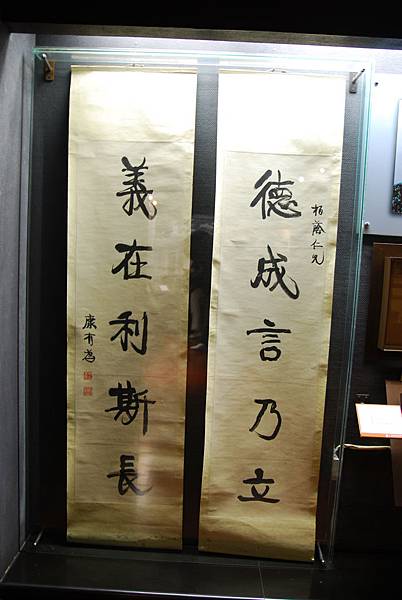 柏蓭仁兄
德成言乃立
義在利斯長
康有為